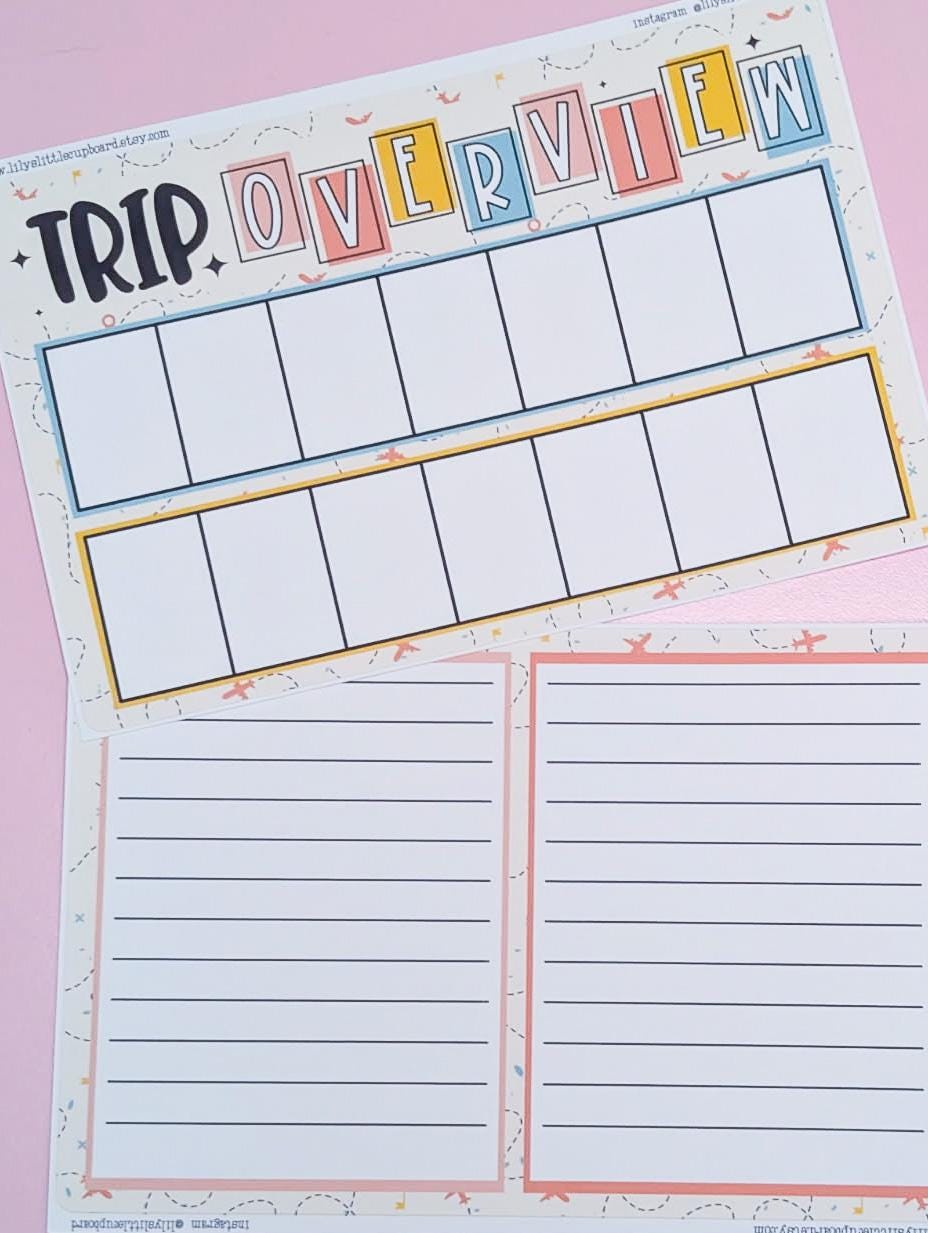 Instagram @lilysl
w.lilyslittlecupboard.etsy.com
TRIP OVERVIEW
Instagram @lilyslittlecupboard
lilyslittlecupboard.etsy.com